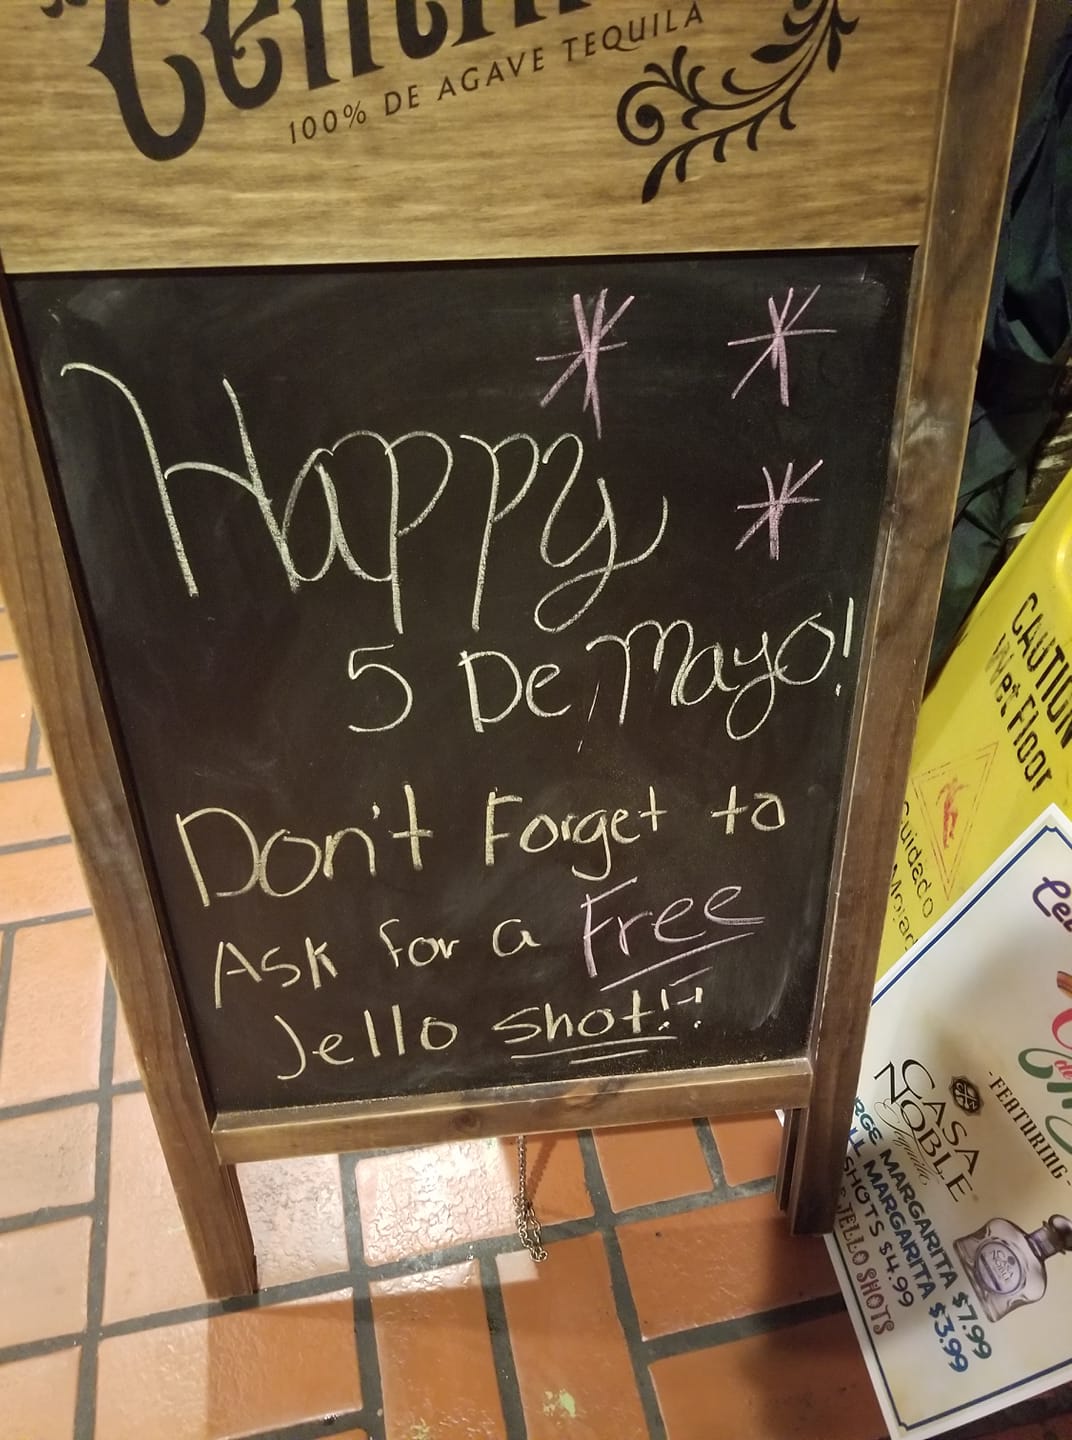 100% DE AGAVE TEQUILA
Happy
5 De Mayo!
Don't Forget to
Ask for a Free
Jello shot!!!
CAUTION
Wet Floor
Cuidado
CASA
NOBLE
Tequila
-FEATURING-
MARGARITA $7.99
MARGARITA $3.99
SHOTS $4.99
JELLO SHOTS